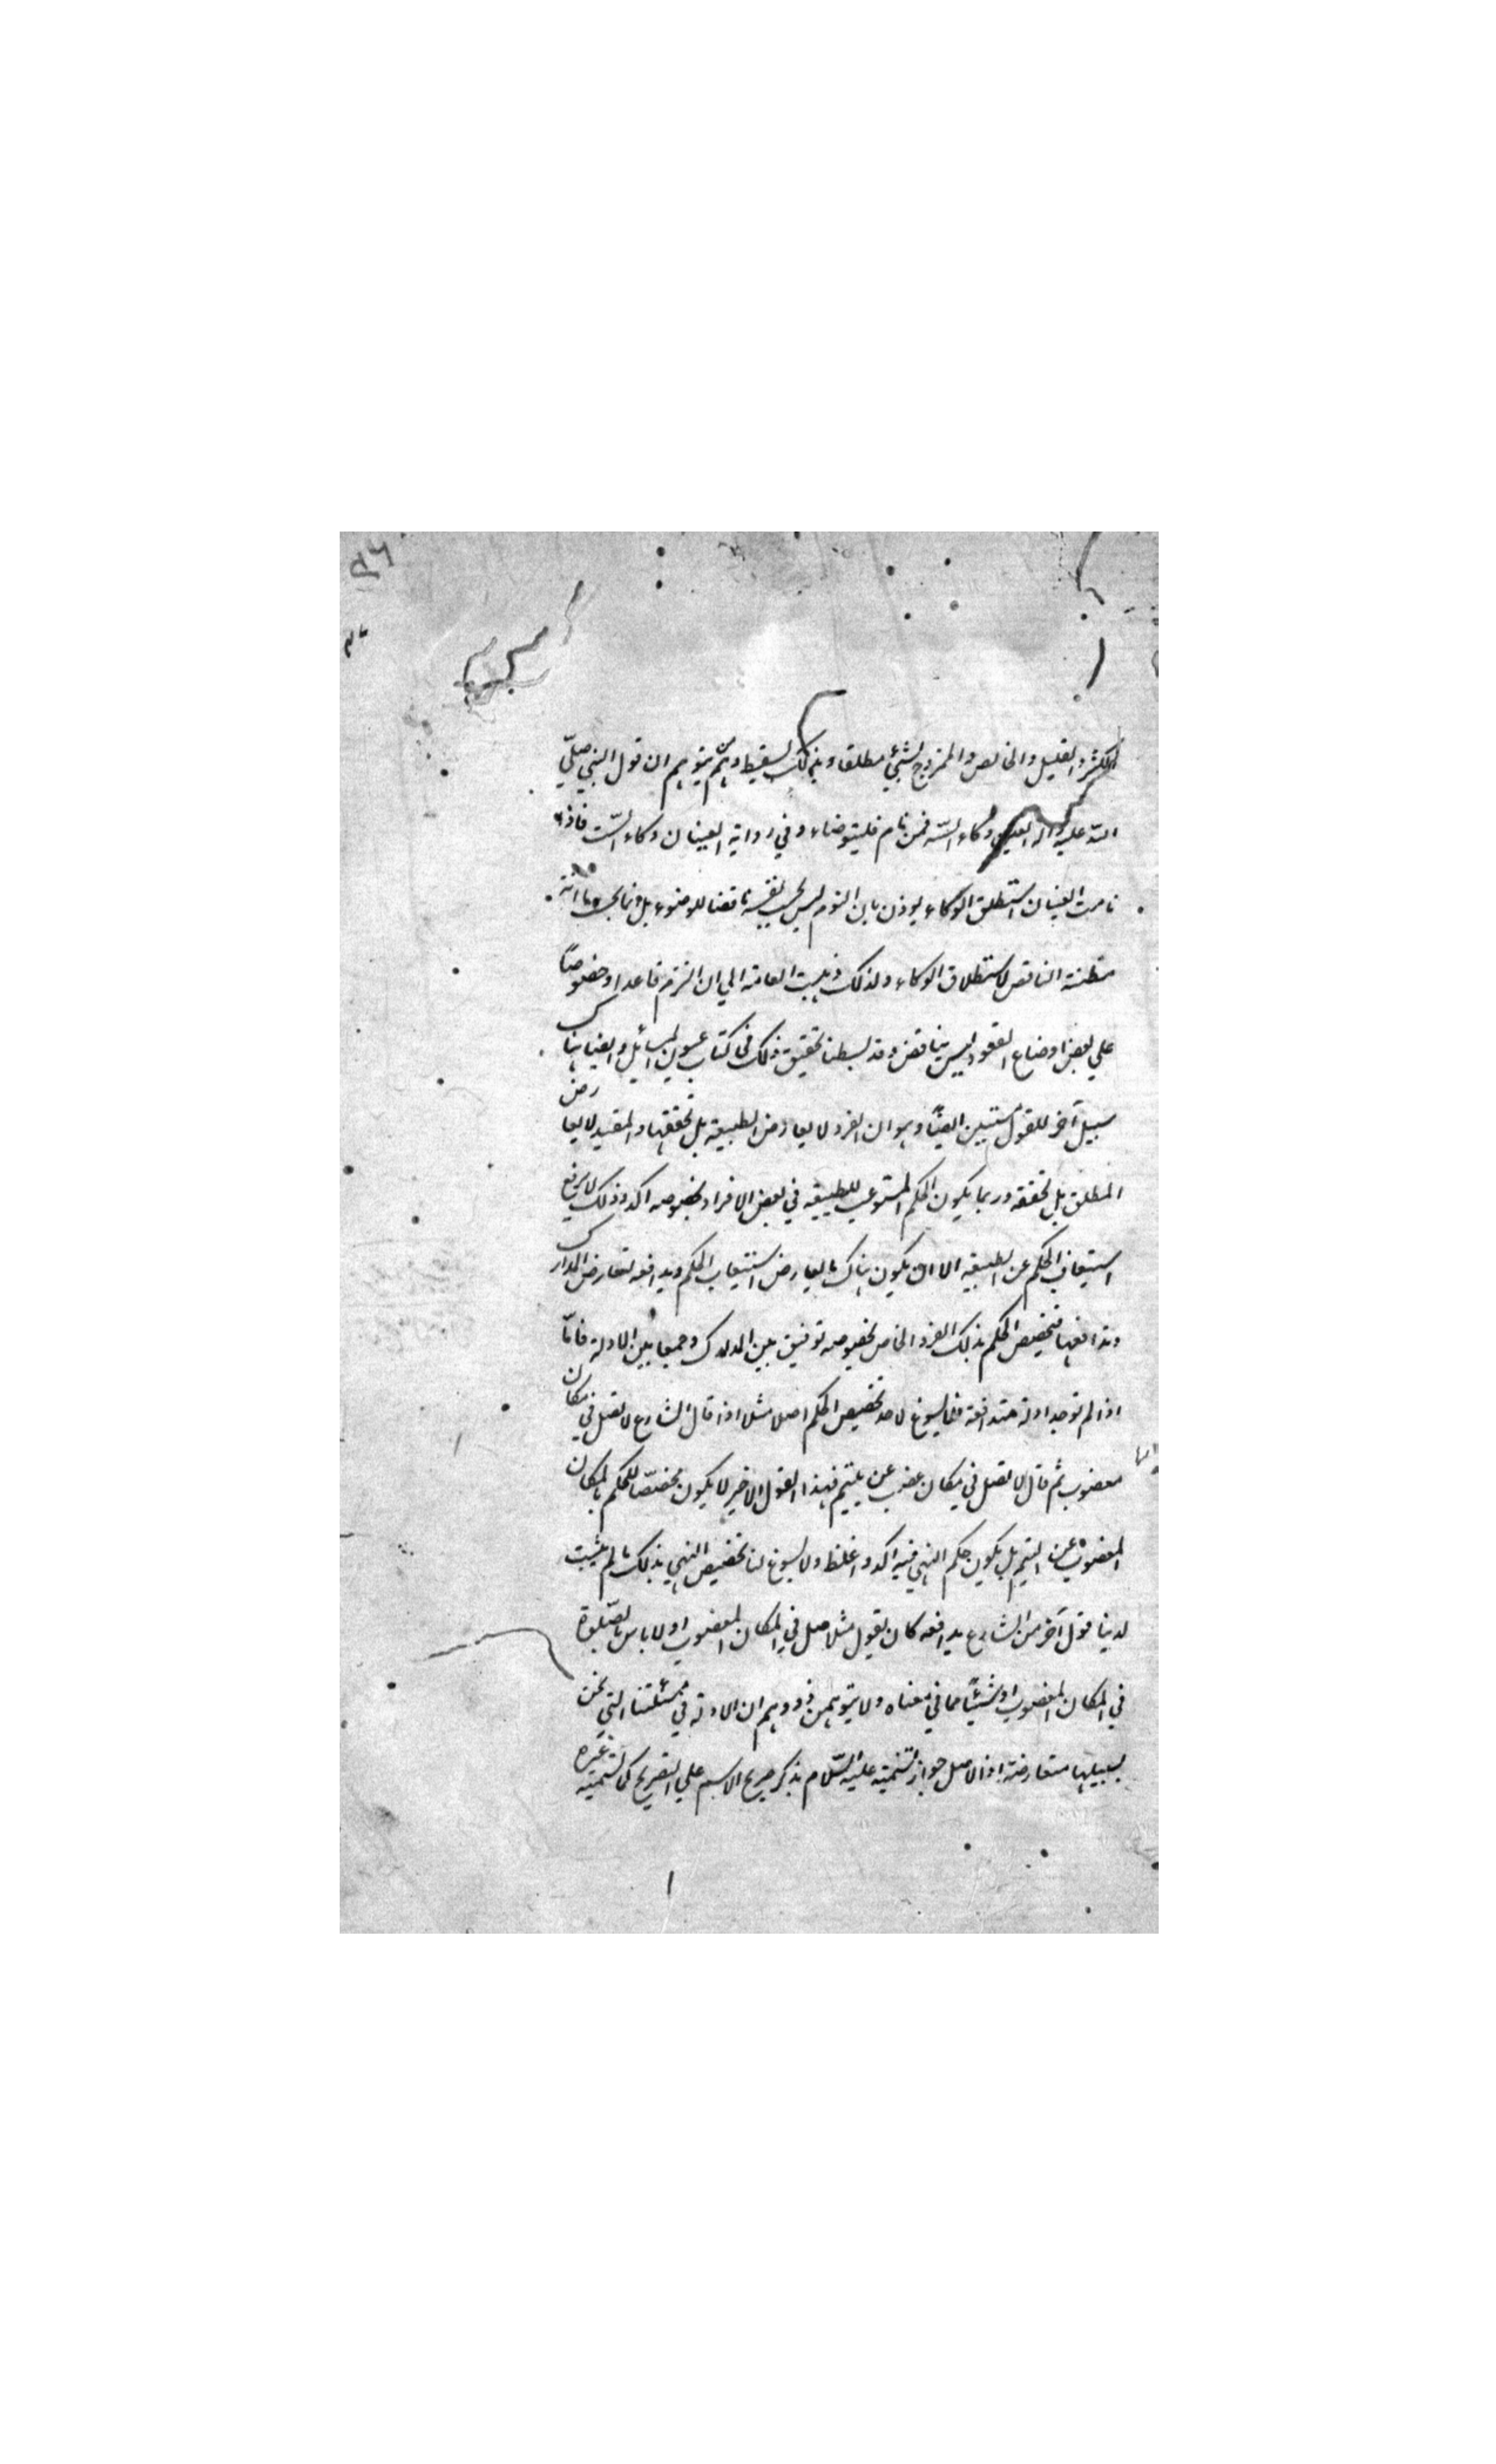 الكثير والقليل والخالص والممزوج لشيئ مطلقا وبذلك يسقط وهم من يتوهم ان قول النبي صلّي
اللّه عليه واله العينين وكاء السّه فمن نام فليتوضاء وفي رواية العينان وكاء السّت فاذا
نامت العينان استطلق الوكاء يوذن بان النوم ليس بحسب نفسه ناقضا للوضوء بل انما بحسب انّه
مظنة الناقص لاستطلاق الوكاء ولذلك ذهبت العامة الي ان النوم قاعدا وخصوصاً
علي بعض اوضاع القعود ليس بناقض وقد بسطنا تحقيق ذلك في كتاب عيون المسائل وايضا هناك
سبيل آخر للقول مستبين ايضاً وهو ان الفرد لا يعارض الطبيعة بل يحققها والمقيد لا يعارض
المطلق بل يحققه وربما يكون الحكم المستوعب للطبيعه في بعض الافراد بخصوصه اكد وذلك لا يرفع
استيعاب الحكم عن الطبيعه الا ان يكون هناك ما يعارض استيعاب الحكم ويدافعه لتعارض المدارك
وتدافعها فتخصيص الحكم بذلك الفرد الخاص بخصوصه توفيق بين المدارك وجمعا بين الادلة فامّا
اذا لم توجد ادلة متدافعة فلا يسوغ لاحد تخصيص الحكم اصلا مثلا اذا قال الشارع لا تصل في مكان
مغصوب ثم قال لا تصل في مكان غصب عن يتيم فهذا القول الاخير لا يكون مخصصّا للحكم بالمكان
المغصوب عن اليتيم بل يكون حكم النهي فيه اكد واغلظ ولا يسوغ لنا تخصيص النهي بذلك ما لم يثبت
لدينا قول آخر من الشارع يدافعه كان يقول مثلا صل في المكان المغصوب او لا باس بالصّلوة
في المكان المغصوب او شيئاً مما في معناه ولا يتوهمن ذو وهم ان الادلة في مسئلتنا التي نحن
بسبيلها متعارضة اذ الاصل جواز تسميته عليه السّلام بذكر صريح الاسم علي التصريح كتسمية غيره